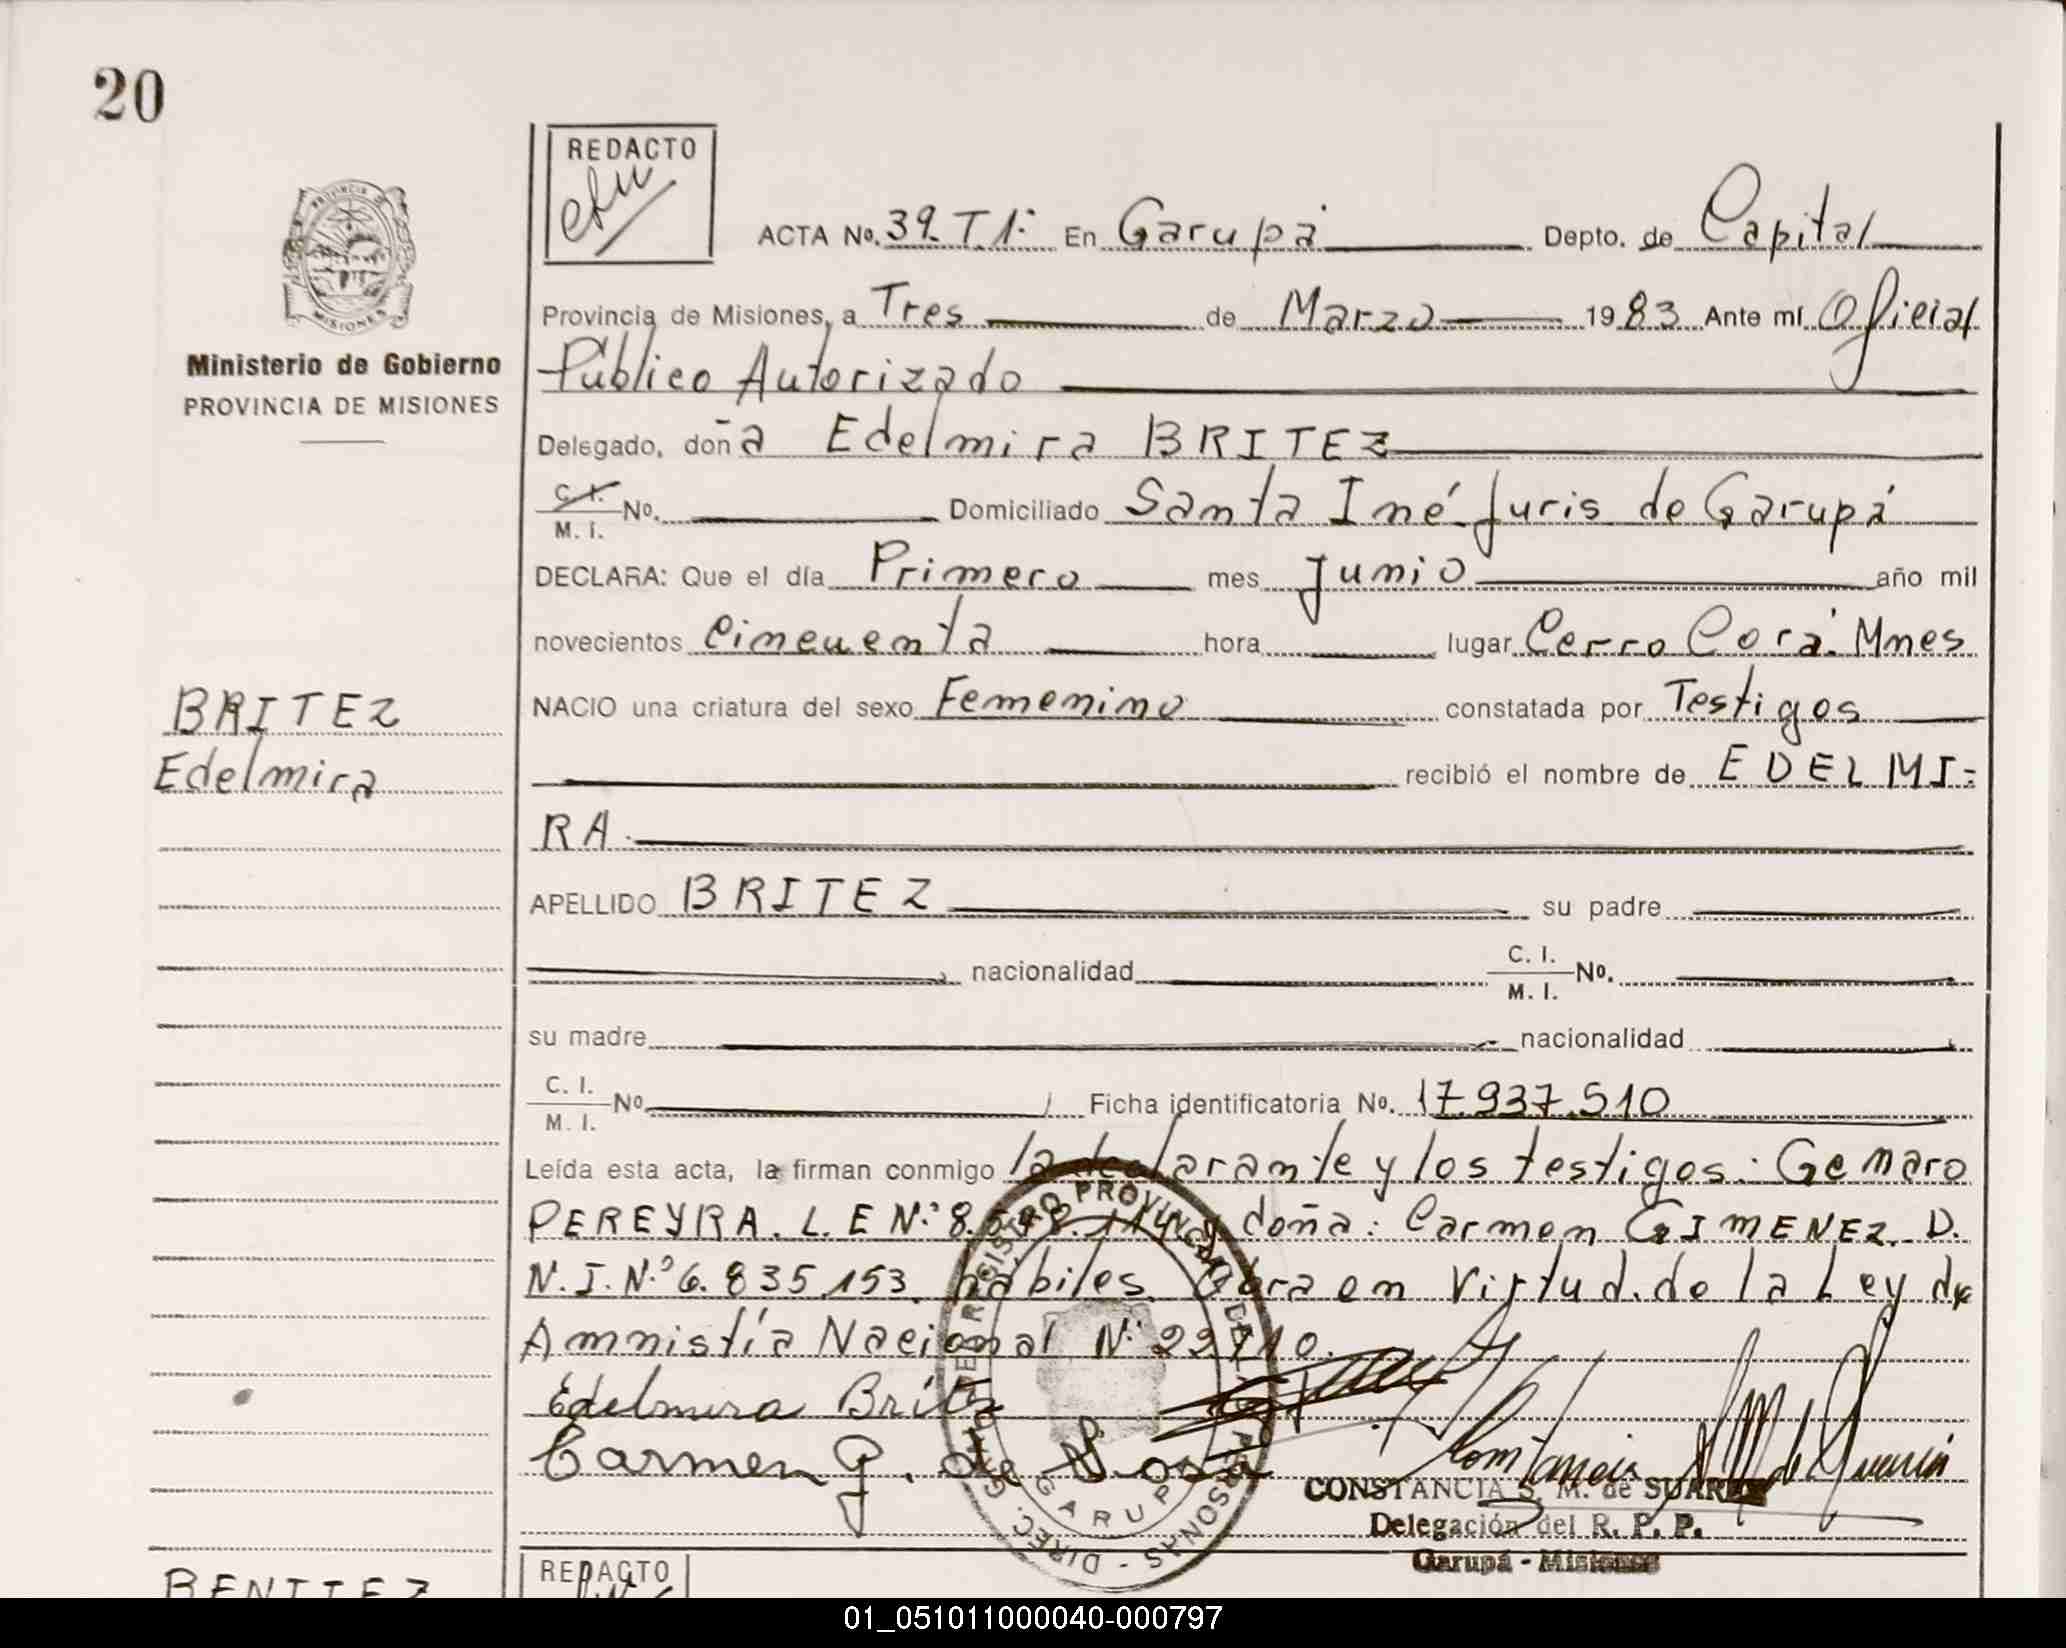 20
REDACTO
ACTA No. 39. T 1: En Garupá Depto. de Capital
Provincia de Misiones, a Tres de Marzo 1983 Ante mí Oficial
Ministerio de Gobierno
PROVINCIA DE MISIONES
Público Autorizado
Delegado, doña Edelmira BRITEZ
C. I.
M. I. No. Domiciliado Santa Iné. Juris de Garupá
DECLARA: Que el día Primero mes Junio año mil
novecientos Cincuenta hora lugar Cerro Corá. Mnes
BRITEZ
Edelmira
NACIO una criatura del sexo Femenino constatada por Testigos
recibió el nombre de EDELMI=
RA.
APELLIDO BRITEZ su padre
nacionalidad C. I.
M. I. No.
su madre nacionalidad
C. I.
M. I. No Ficha identificatoria No. 17.937.510
Leída esta acta, la firman conmigo la declarante y los testigos: Genaro
PEREYRA. L. E N:° 8. y doña: Carmen GIMENEZ. D.
N. I. N.° 6.835.153. hábiles. Obra en Virtud. de la Ley de
Amnistía Nacional N:
Edelmira Britez
Carmen G. de Sosa
CONSTANCIA S. M. de SUAREZ
Delegación del R. P. P.
Garupá - Misiones
DIREC. GRAL. DEL REGISTRO PROVINCIAL DE LAS PERSONAS -
GARUPA
BENITEZ
REDACTO
01_051011000040-000797